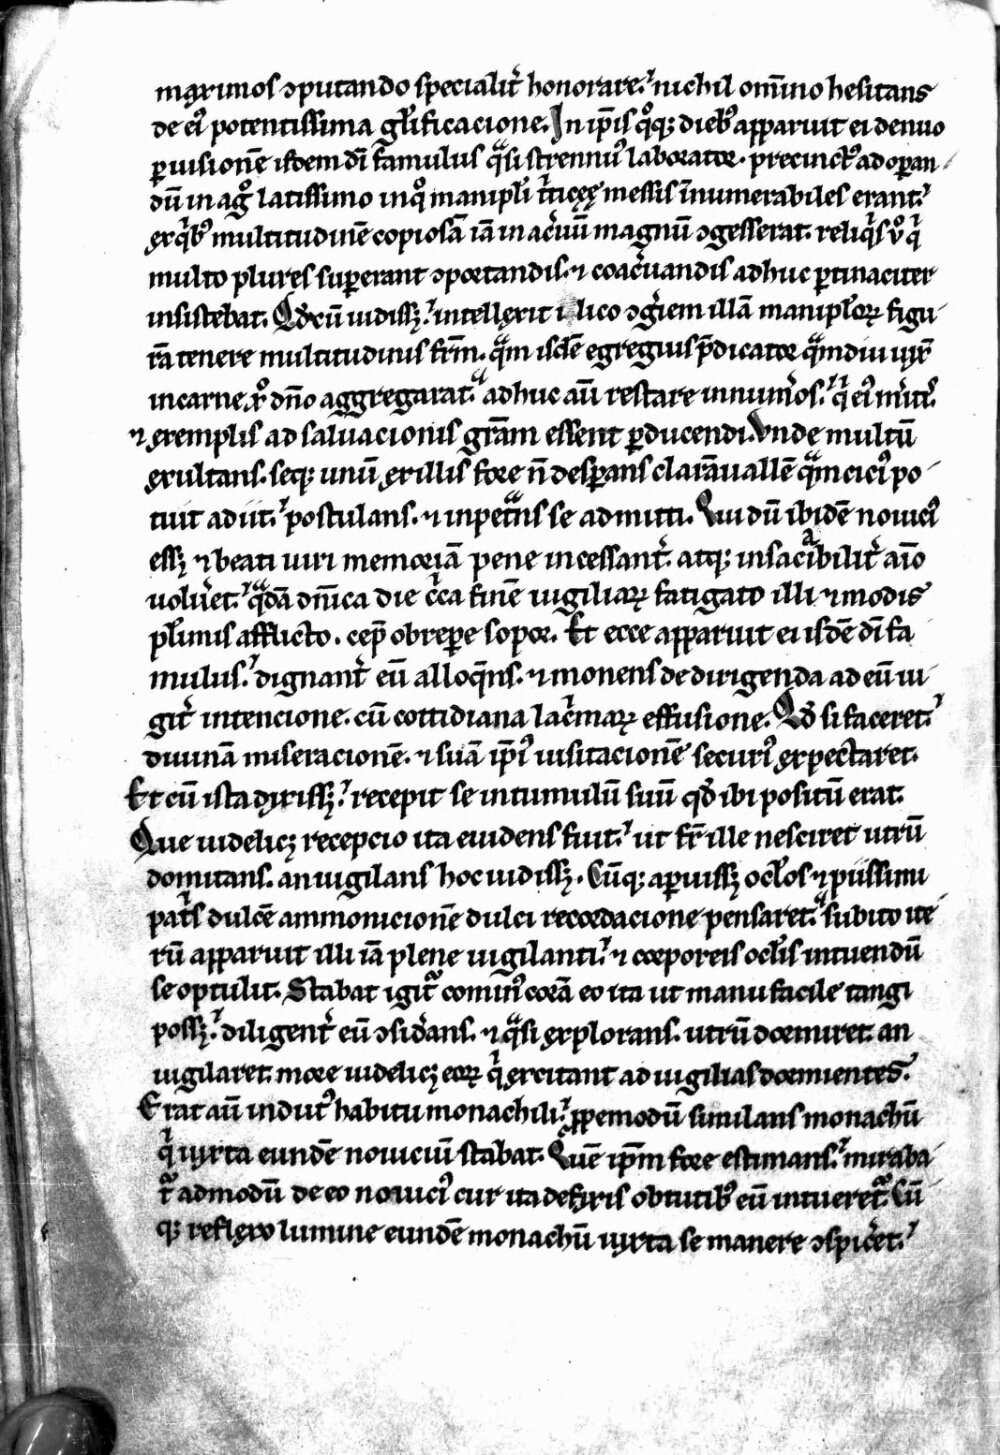 maximos ꝯputando specialit̾ honorare.᾽ nichil om̅ino hesitans
de eiꝰ potentissima gl̅ificacione. In ip̅is qͦꝫ diebꝰ apparuit ei denuo
ꝑ uisione̅ isdem di̅ famulus qᵃsi strennuꝰ laborator. precinctꝰ ad oꝑan
du̅ in agͦ latissimo in qͦ manipli̅ t̾ticęę messis in̅umerabiles erant.᾽
ex qͥbꝰ multitudine̅ copiosa̅ ia̅ in ac̾uu̅ magnu̅ ꝯgesserat. reliqͥs uͦ qͥ
multo plures suꝑerant ꝯportandis. ⁊ coac̾uandis adhuc ꝑtinaciter
insistebat. Qd̾ cu̅ uidissꝫ.᾽ intellexit ilico ꝯgͥem illa̅ manipl̅oꝝ figu
ra̅ tenere multitudinis fr̅m. qᵃm isde̅ egregius p̅dicator qᵃmdiu uix̾
in carne xͬ dn̅o aggregarat.᾽ adhuc au̅ restare innum̾os.᾽ qͥ eiꝰ m̾itꝭ
⁊ exemplis ad saluacionis gr̅am essent ꝑducendi. Vnde multu̅
exultans. seqꝫ unu̅ ex illis fore n̅ desꝑans clara̅ualle̅ qᵃmciciꝰ po
tuit adiit.᾽ postulans. ⁊ inpetᵃns se admitti. Qui du̅ ibide̅ nouiciꝰ
essꝫ ⁊ beati uiri memoria̅ pene incessant̾. atqꝫ insaciᵃbilit̾ aio̅
uolu̾et.᾽ qᵃda̅ dn̅ica die c̾ca fine̅ uigiliaꝝ fatigato illi ⁊ modis
pl̅imis afflicto. cep̅ obreꝑe sopor. Et ecce apparuit ei isde̅ di̅ fa
mulus.᾽ dignant̾ eu̅ alloqͤns. ⁊ monens de dirigenda ad eu̅ iu
git̾ intencione. cu̅ cottidiana lac̾maꝝ effusione. Qd̾ si faceret.᾽
diuina̅ miseracione̅. ⁊ sua̅ ip̅iꝰ uisitacione̅ securꝰ expectaret.
Et cu̅ ista dixissꝫ.᾽ recepit se in tumulu̅ suu̅ qd̾ ibi positu̅ erat.
Que uidelicꝫ recepcio ita euidens fuit.᾽ ut fr̅ ille nesciret utru̅
domitans. an uigilans hoc uidissꝫ. Cu̅qꝫ aꝑuissꝫ ocl̅os ⁊ piissimi
patͥs dulce̅ ammonicione̅ dulci recordacione pensaret.᾽ subito ite
ru̅ apparuit illi ia̅ plene uigilanti.᾽ ⁊ corporeis ocl̅is intuendu̅
se optulit. Stabat igitᵃ cominꝰ cora̅ eo ita ut manu facile tangi
possꝫ.᾽ diligent̾ eu̅ ꝯsid̾ans. ⁊ qᵃsi explorans. utru̅ dormiret. an
uigilaret. more uidelicꝫ eoꝝ qͥ excitant ad uigilias dormientes.᾽
Erat au̅ indutꝰ habitu monachili.᾽ ꝓpemodu̅ similans monachu̅
qͥ iuxta eunde̅ nouiciu̅ stabat. Que̅ ip̅m fore estimans.᾽ miraba
tᵃ admodu̅ de eo nouiciꝰ cur ita defixis obtutibꝰ eu̅ intueretᵃ. Cu̅
qꝫ reflexo lumine eunde̅ monachu̅ iuxta se manere ꝯspic̾et.᾽